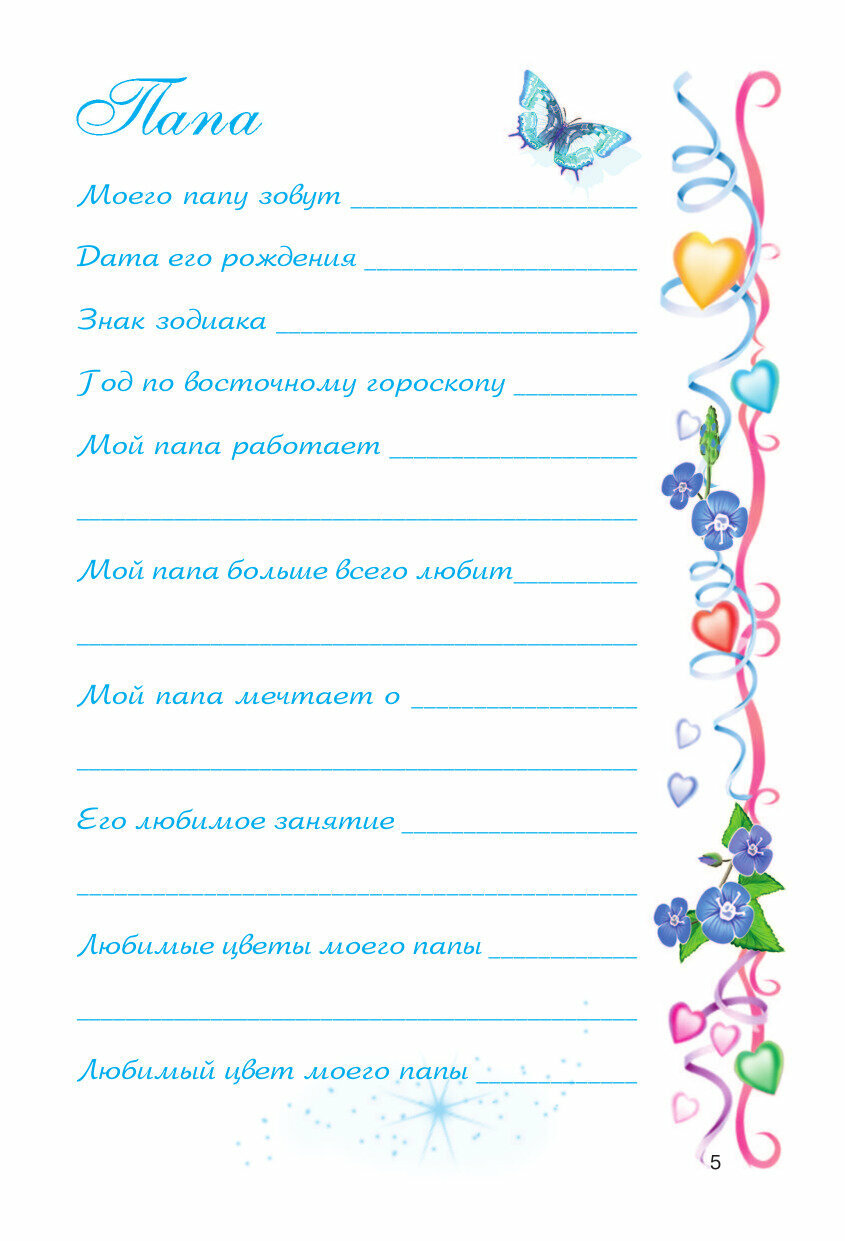 Папа
Моего папу зовут ____________________
Дата его рождения ___________________
Знак зодиака _________________________
Год по восточному гороскопу _________
Мой папа работает _________________
_______________________________________
Мой папа больше всего любит_________
_______________________________________
Мой папа мечтает о ________________
_______________________________________
Его любимое занятие ________________
_______________________________________
Любимые цветы моего папы __________
_______________________________________
Любимый цвет моего папы ___________
5